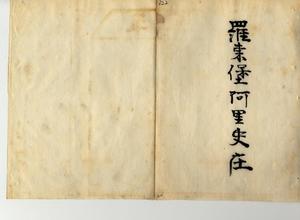 羅東堡阿里史庄